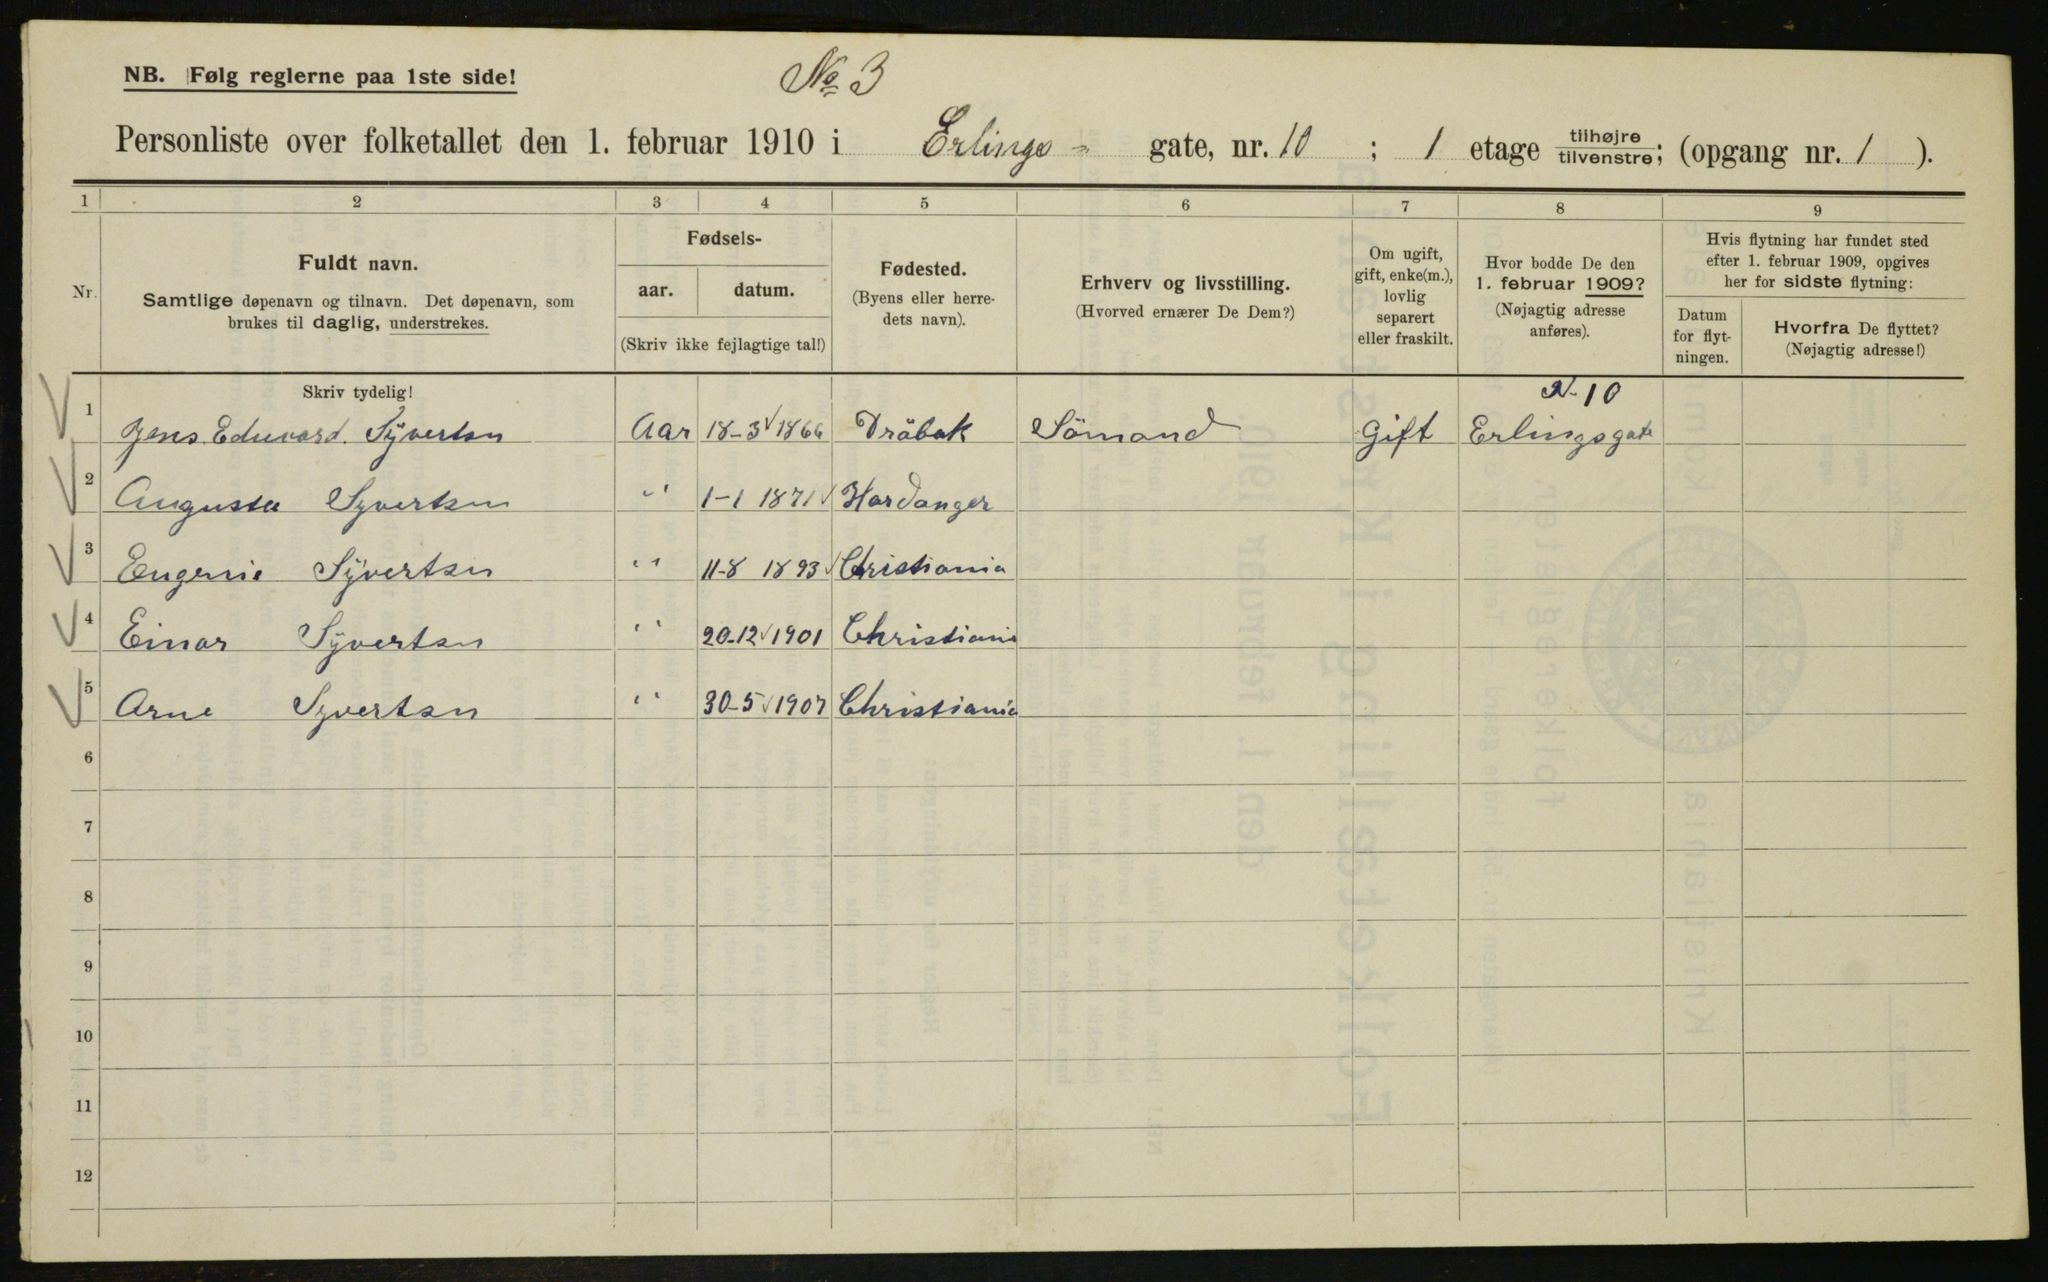 No 3
NB. Følg reglerne paa 1ste side!
Personliste over folketallet den 1. februar 1910 i Erlings- gate, nr. 10 ; 1 etage tilhøjre/tilvenstre; (opgang nr. 1 ).
1 2 3 4 5 6 7 8 9
Nr.
Fuldt navn.
Samtlige døpenavn og tilnavn. Det døpenavn, som
brukes til daglig, understrekes.
Fødsels-
aar. datum.
(Skriv ikke fejlagtige tal!)
Fødested.
(Byens eller herre-
dets navn).
Erhverv og livsstilling.
(Hvorved ernærer De Dem?)
Om ugift,
gift, enke(m.),
lovlig
separert
eller fraskilt.
Hvor bodde De den
1. februar 1909?
(Nøjagtig adresse
anføres).
Hvis flytning har fundet sted
efter 1. februar 1909, opgives
her for sidste flytning:
Datum
for flyt-
ningen.
Hvorfra De flyttet?
(Nøjagtig adresse!)
Skriv tydelig!
N-10
1 Jens Eduvard. Sÿvertsn Aar 18-3 1866 Dröbak Sömand Gift Erlingsgate
2 Augusta Syvertsn " 1-1 1871 Hardanger
3 Eugenie Sÿvertsn " 11-8 1893 Christiania
4 Einar Sÿvertsn " 20-12 1901 Christiania
5 Arne Syvertsn " 30-5 1907 Christiania
6
7
8
9
10
11
12